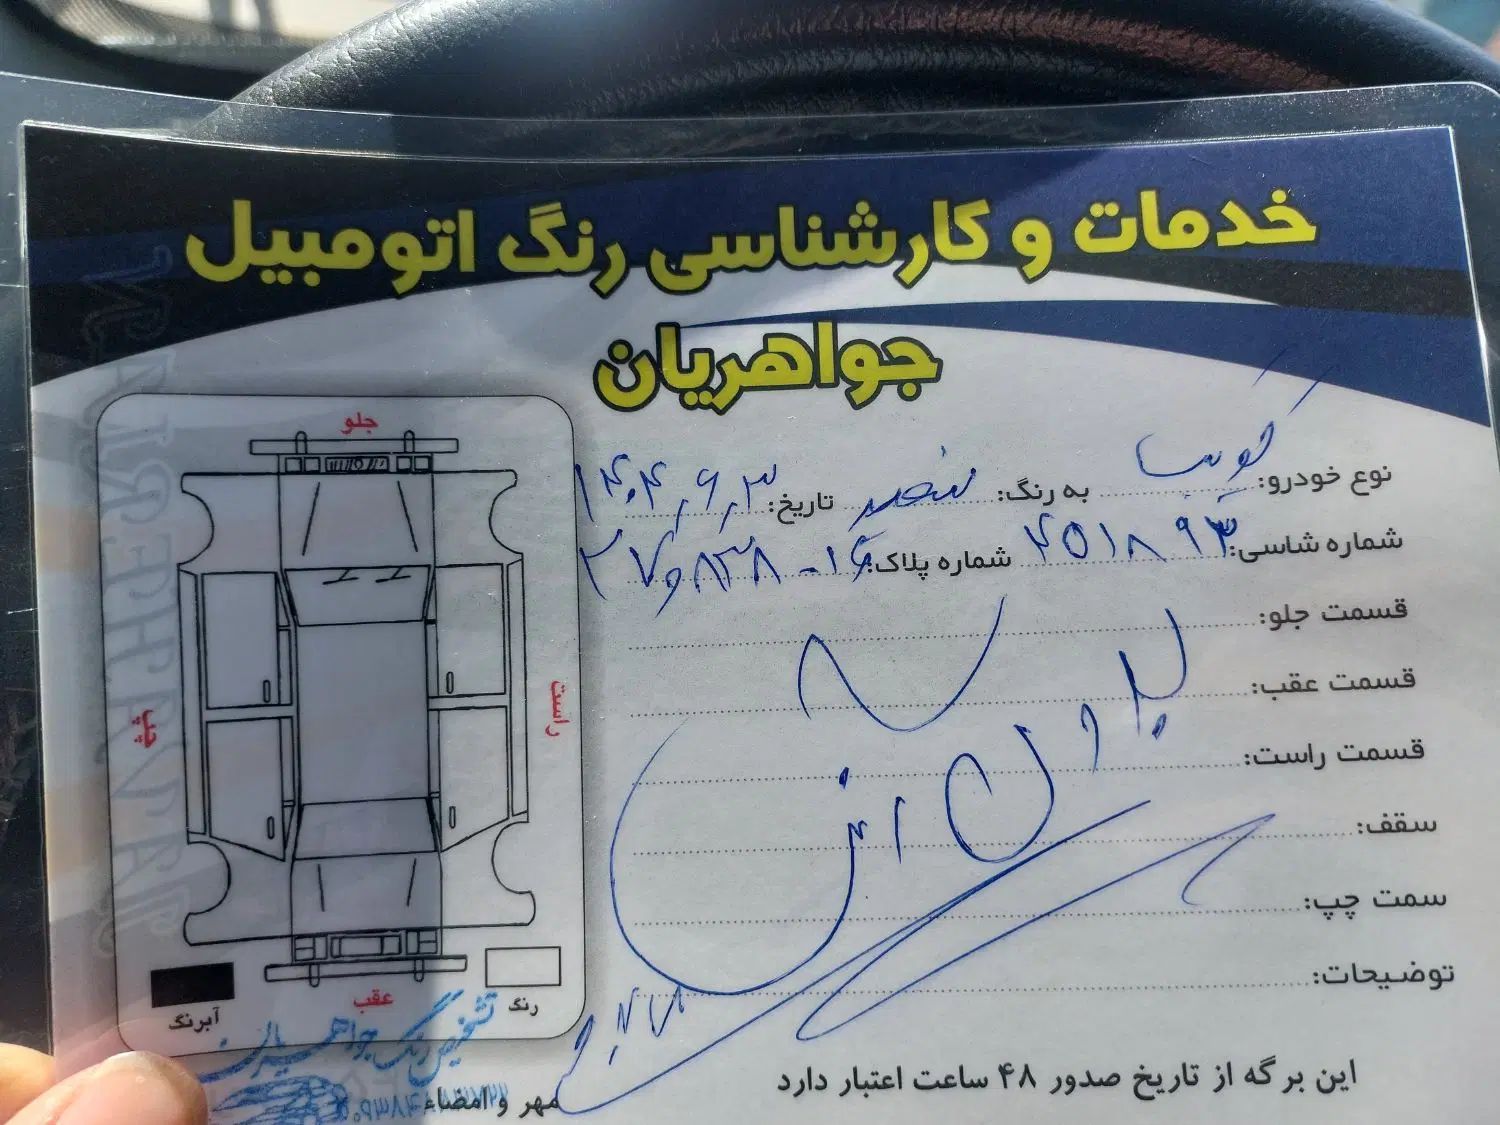 خدمات و کارشناسی رنگ اتومبیل
جواهریان
نوع خودرو: کوییک به رنگ: سفید تاریخ: ۱۴۰۴,۶,۳
شماره شاسی: ۴۵۱۸۹۳ شماره پلاک: ۳۷و۸۳۸-۱۶
قسمت جلو:
قسمت عقب:
قسمت راست:
سقف:
سمت چپ:
توضیحات:
این برگه از تاریخ صدور ۴۸ ساعت اعتبار دارد
مهر و امضاء
جلو
راست
چپ
عقب
رنگ
آبرنگ
تشخیص رنگ جواهریان